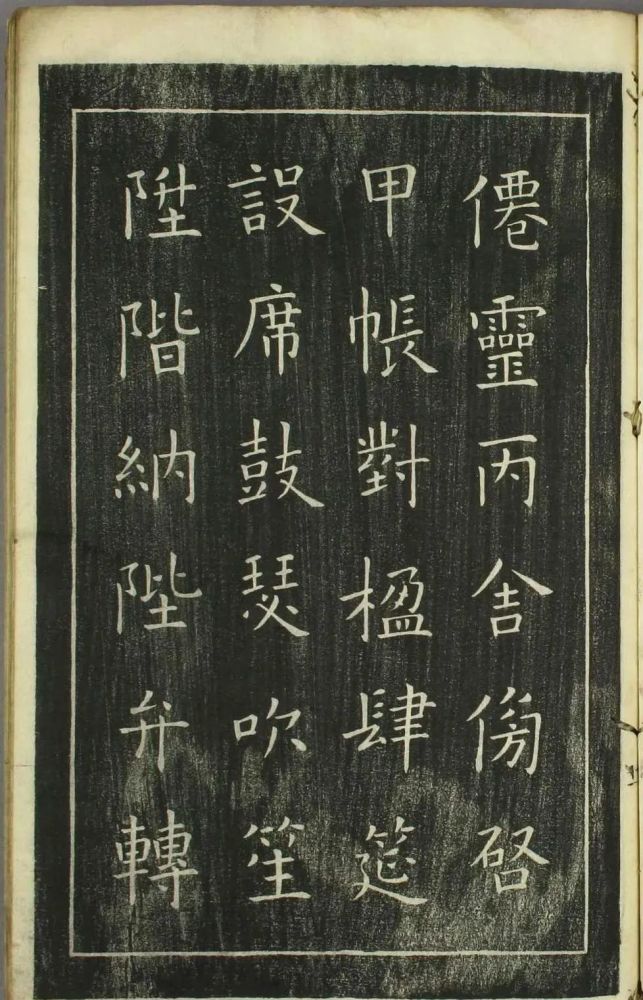 僊靈丙舍傍啓
甲帳對楹肆筵
設席鼓瑟吹笙
陞階納陛弁轉